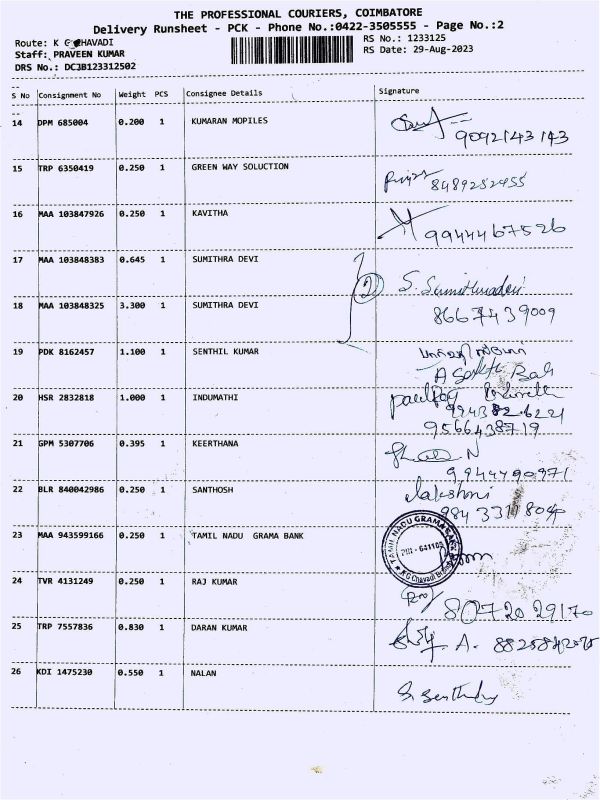 THE PROFESSIONAL COURIERS, COIMBATORE
Delivery Runsheet - PCK - Phone No.:0422-3505555 - Page No.:2
Route: K G CHAVADI
RS No.: 1233125
Staff: PRAVEEN KUMAR
RS Date: 29-Aug-2023
DRS No.: DCJB123312502
S No Consignment No Weight PCS Consignee Details Signature
14 DPM 685004 0.200 1 KUMARAN MOPILES
9092143143
15 TRP 6350419 0.250 1 GREEN WAY SOLUCTION
8489252455
16 MAA 103847926 0.250 1 KAVITHA
9944467526
17 MAA 103848383 0.645 1 SUMITHRA DEVI
2 S. Sumithradevi
18 MAA 103848325 3.300 1 SUMITHRA DEVI
8667439009
19 PDK 8162457 1.100 1 SENTHIL KUMAR
20 HSR 2832818 1.000 1 INDUMATHI
9566438719
21 GPM 5307706 0.395 1 KEERTHANA
9944490971
22 BLR 840042986 0.250 1 SANTHOSH
Lakshmi
23 MAA 943599166 0.250 1 TAMIL NADU GRAMA BANK
TAMIL NADU GRAMA BANK
PIN - 641105
K G Chavadi Branch
24 TVR 4131249 0.250 1 RAJ KUMAR
8072029170
25 TRP 7557836 0.830 1 DARAN KUMAR
A.
26 KDI 1475230 0.550 1 NALAN